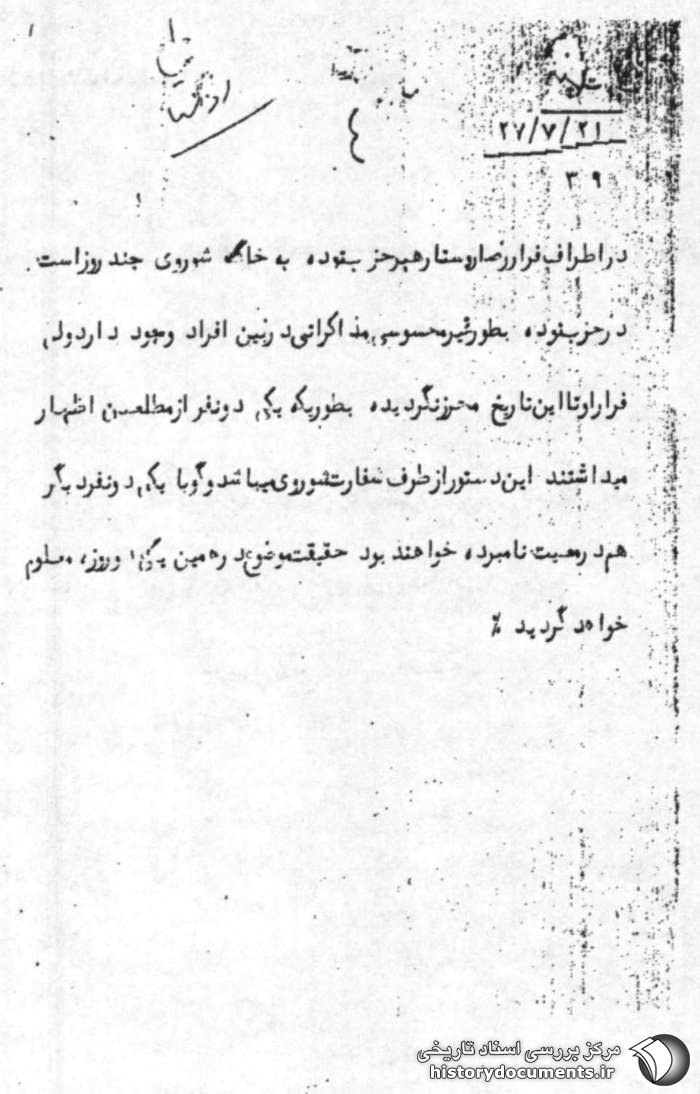 ۲۷/۷/۲۱
۳۹
در اطراف فرار رضا روستا رهبر حزب توده به خاک شوروی چند روز است
در حزب توده بطور غیر محسوسی مذاکراتی در بین افراد وجود دارد ولی
فرار او تا این تاریخ محرز نگردیده بطوریکه یکی دو نفر از مطلعین اظهار
میداشتند این دستور از طرف سفارت شوروی میباشد و گویا یکی دو نفر دیگر
هم در معیت نامبرده خواهند بود حقیقت موضوع در همین یکی دو روزه معلوم
خواهد گردید ٪
مرکز بررسی اسناد تاریخی
historydocuments.ir